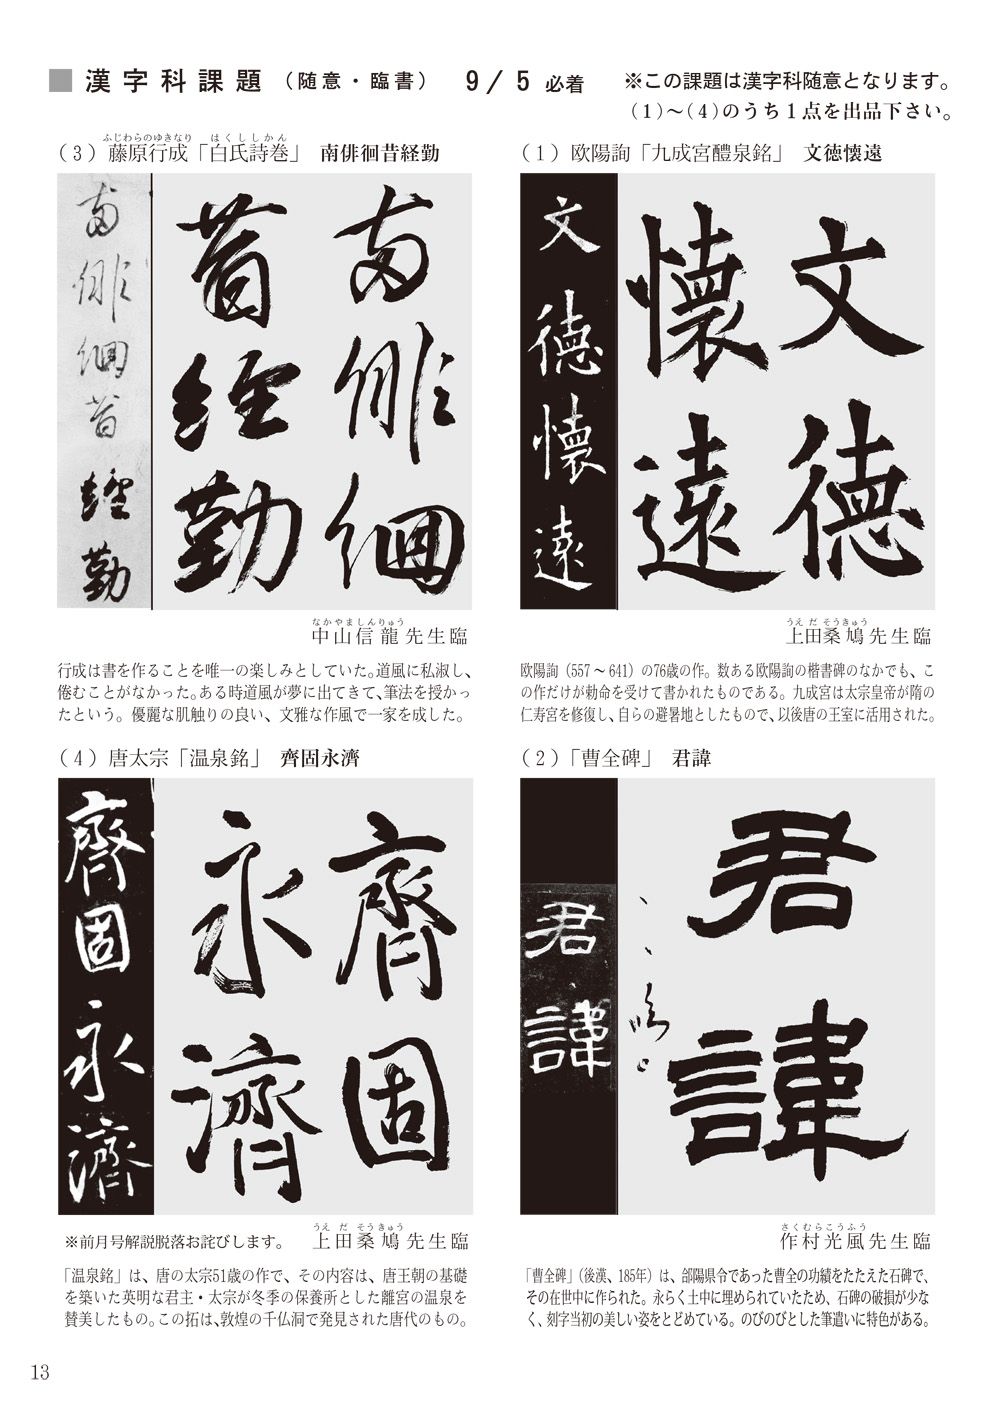 ■ 漢字科課題（随意・臨書） 9／5 必着 ※この課題は漢字科随意となります。
（1）～（4）のうち１点を出品下さい。
（1）欧陽詢「九成宮醴泉銘」 文徳懐遠
文徳懷遠
文徳
懷遠
うえ だ そうきゅう
上田桑鳩先生臨
欧陽詢（557～641）の76歳の作。数ある欧陽詢の楷書碑のなかでも、こ
の作だけが勅命を受けて書かれたものである。九成宮は太宗皇帝が隋の
仁寿宮を修復し、自らの避暑地としたもので、以後唐の王室に活用された。
（2）「曹全碑」 君諱
君諱
君諱
さくむらこうふう
作村光風先生臨
「曹全碑」（後漢、185年）は、郃陽県令であった曹全の功績をたたえた石碑で、
その在世中に作られた。永らく土中に埋められていたため、石碑の破損が少な
く、刻字当初の美しい姿をとどめている。のびのびとした筆遣いに特色がある。
ふじわらのゆきなり はくししかん
（3）藤原行成「白氏詩巻」 南俳徊昔経勤
南俳徊昔經勤
南俳徊
昔經勤
なかやましんりゅう
中山信龍先生臨
行成は書を作ることを唯一の楽しみとしていた。道風に私淑し、
倦むことがなかった。ある時道風が夢に出てきて、筆法を授かっ
たという。優麗な肌触りの良い、文雅な作風で一家を成した。
（4）唐太宗「温泉銘」 齊固永濟
齊固永濟
齊固
永濟
※前月号解説脱落お詫びします。
うえ だ そうきゅう
上田桑鳩先生臨
「温泉銘」は、唐の太宗51歳の作で、その内容は、唐王朝の基礎
を築いた英明な君主・太宗が冬季の保養所とした離宮の温泉を
賛美したもの。この拓は、敦煌の千仏洞で発見された唐代のもの。
13